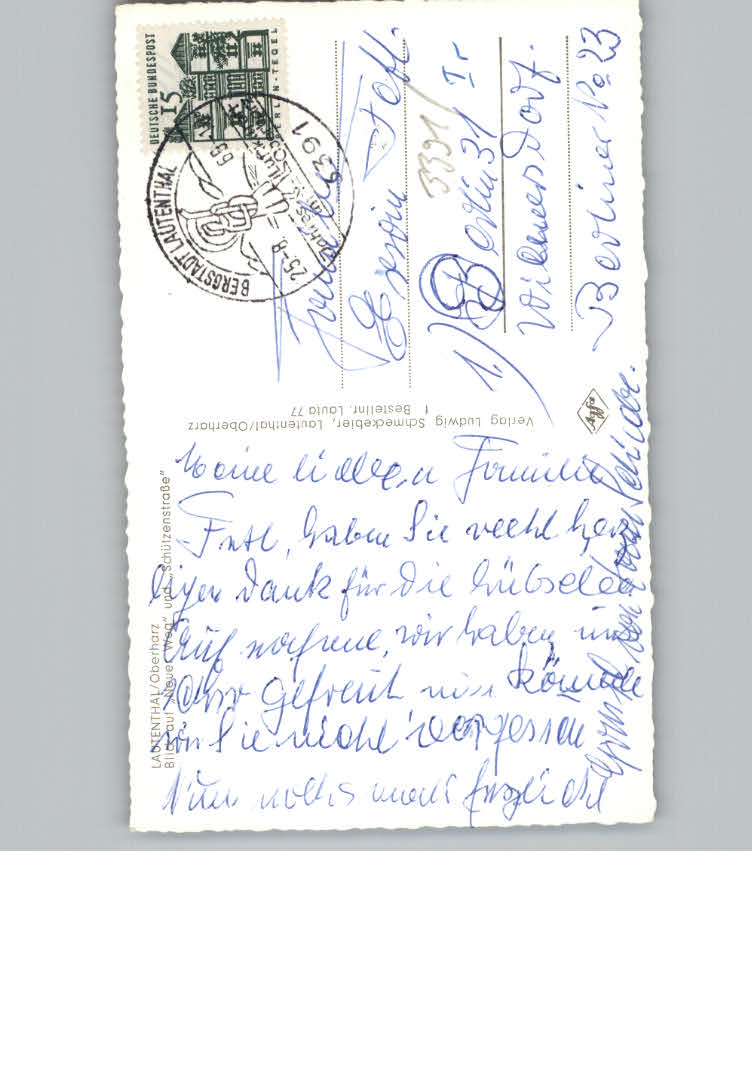 LAUTENTHAL/Oberharz
Blick auf „Neuer Weg" und „Schützenstraße"
Meine lieben Familie
haben Sie recht herz
ligen Dank für die hübschen
Aufnahme, wir haben uns
sehr gefreut nun können
wir Sie nicht vergessen
Nun nochmals herzlichst
Verlag Ludwig Schmeckebier, Lautenthal/Oberharz
Bestellnr. Lauta 77
Agfa
DEUTSCHE BUNDESPOST
15
BERLIN-TEGEL
BERGSTADT LAUTENTHAL
25-8
3391
Familie
Erwin
3391
1.) Berlin 31
Wilmersdorf.
Berliner No 23